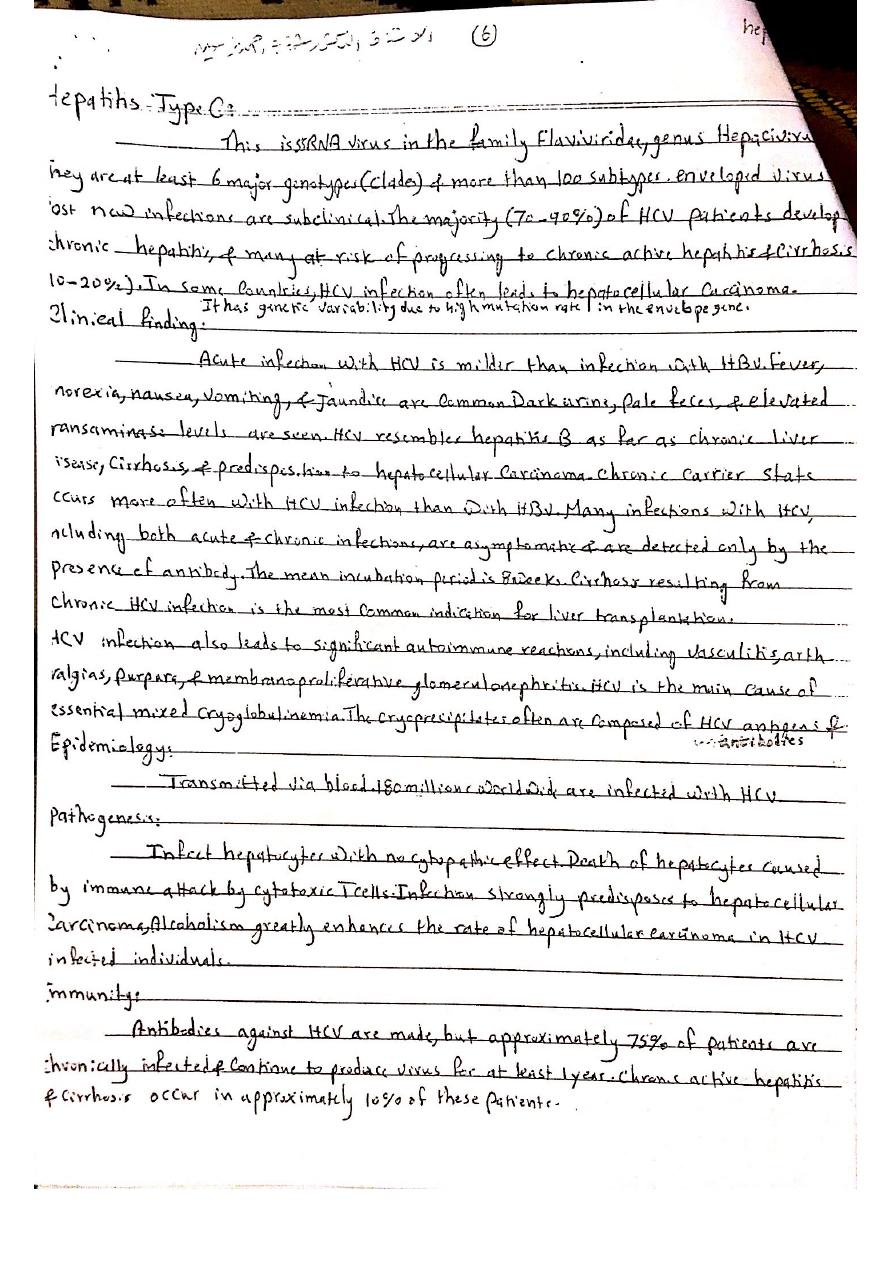 (6) الاستاذ الدكتور شذى
hep
Hepatitis-Type C:
This is ssRNA virus in the family Flaviviridae, genus Hepacivirus
They are at least 6 major genotypes (clades) & more than 100 subtypes. enveloped virus
ost new infections are subclinical. The majority (70-90%) of HCV patients develop
chronic hepatitis, & many at risk of progressing to chronic active hepatitis & Cirrhosis
10-20%). In some Countries, HCV infection often leads to hepatocellular Carcinoma.
It has genetic variability due to high mutation rate in the envelope gene.
Clinical finding:
Acute infection with HCV is milder than infection with HBV. Fever,
norexia, nausea, vomiting, & Jaundice are Common. Dark urine, Pale feces, & elevated
ransaminase levels are seen. HCV resembles hepatitis B as far as chronic liver
isease, Cirrhosis, & predisposition to hepatocellular Carcinoma. Chronic Carrier State
ccurs more often with HCV infection than with HBV. Many infections with HCV,
ncluding both acute & chronic infections, are asymptomatic & are detected only by the
presence of antibody. The mean incubation period is 8 week. Cirrhosis resulting from
chronic HCV infection is the most Common indication for liver transplantation.
HCV infection also leads to significant autoimmune reactions, including vasculitis, arth
ralgias, Purpura, & membranoproliferative glomerulonephritis. HCV is the main cause of
essential mixed cryoglobulinemia. The cryoprecipitates often are Composed of HCV antigens &
antibodies
Epidemiology:
Transmitted via blood. 180 millions worldwide are infected with HCV
Pathogenesis:
Infect hepatocytes with no cytopathic effect. Death of hepatocytes caused
by immune attack by cytotoxic T cells. Infection strongly predisposes to hepatocellular
Carcinoma, Alcoholism greatly enhances the rate of hepatocellular carcinoma in HCV
infected individuals.
immunity:
Antibodies against HCV are made, but approximately 75% of patients are
chronically infected & Continue to produce virus for at least 1 year. Chronic active hepatitis
& Cirrhosis occur in approximately 10% of these Patients.